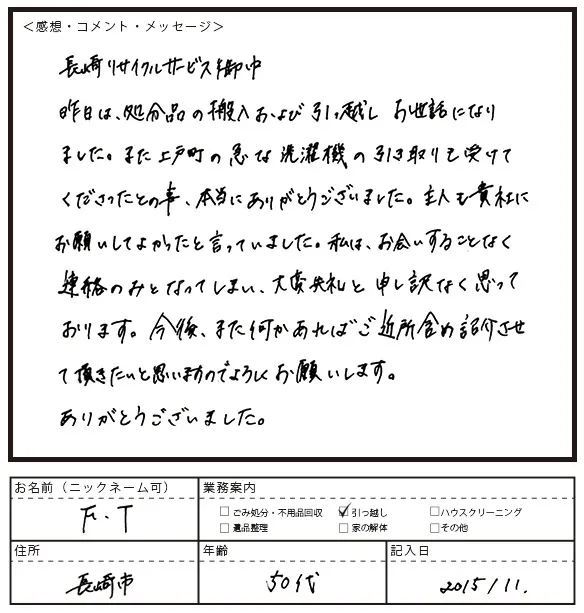 ＜感想・コメント・メッセージ＞
長崎リサイクルサービス御中
昨日は、処分品の搬入および引っ越し お世話になり
ました。また上戸町の急な洗濯機の引き取りも受けて
くださったとの事、本当にありがとうございました。主人も貴社に
お願いしてよかったと言っていました。私は、お会いすることなく
連絡のみとなってしまい、大変失礼と申し訳なく思って
おります。今後、また何かあればご近所含め紹介させ
て頂きたいと思いますのでよろしくお願いします。
ありがとうございました。
お名前（ニックネーム可） 業務案内
F・T
□ごみ処分・不用品回収 ☑引っ越し □ハウスクリーニング
□遺品整理 □家の解体 □その他
住所 年齢 記入日
長崎市 50代 2015/11.